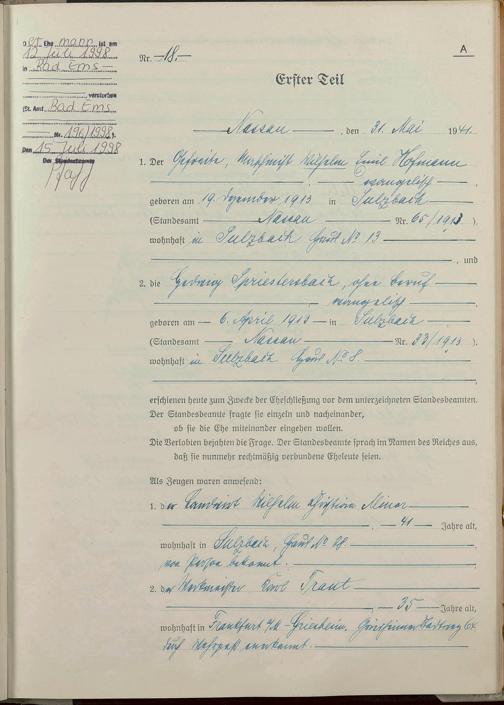 Der Ehemann ist am
12. Juli 1998
in Bad Ems
verstorben
(St. Amt Bad Ems
Nr. 196/1998).
Den 15. Juli 1998
Der Standesbeamte
A
Nr. 18.
Erster Teil
Nassau, den 31. Mai 1941.
1. Der Gefreite, Wilhelm Emil Hofmann
evangelisch
geboren am 19. Dezember 1913 in Sulzbach
(Standesamt Nassau Nr. 65/1913).
wohnhaft in Sulzbach Haus No 13
, und
2. die Hedwig Spriestersbach, ohne Beruf
evangelisch
geboren am 6. April 1913 in Sulzbach
(Standesamt Nassau Nr. 23/1913).
wohnhaft in Sulzbach Haus No 8.
erschienen heute zum Zwecke der Eheschließung vor dem unterzeichneten Standesbeamten.
Der Standesbeamte fragte sie einzeln und nacheinander,
ob sie die Ehe miteinander eingehen wollen.
Die Verlobten bejahten die Frage. Der Standesbeamte sprach im Namen des Reiches aus,
daß sie nunmehr rechtmäßig verbundene Eheleute seien.
Als Zeugen waren anwesend:
1. der Landwirt Wilhelm Christian
, 41 Jahre alt,
wohnhaft in Sulzbach, Haus No 28
von Person bekannt.
2. der Werkmeister Karl Traut
, 35 Jahre alt,
wohnhaft in Frankfurt a/M-Griesheim,
durch Wehrpaß anerkannt.